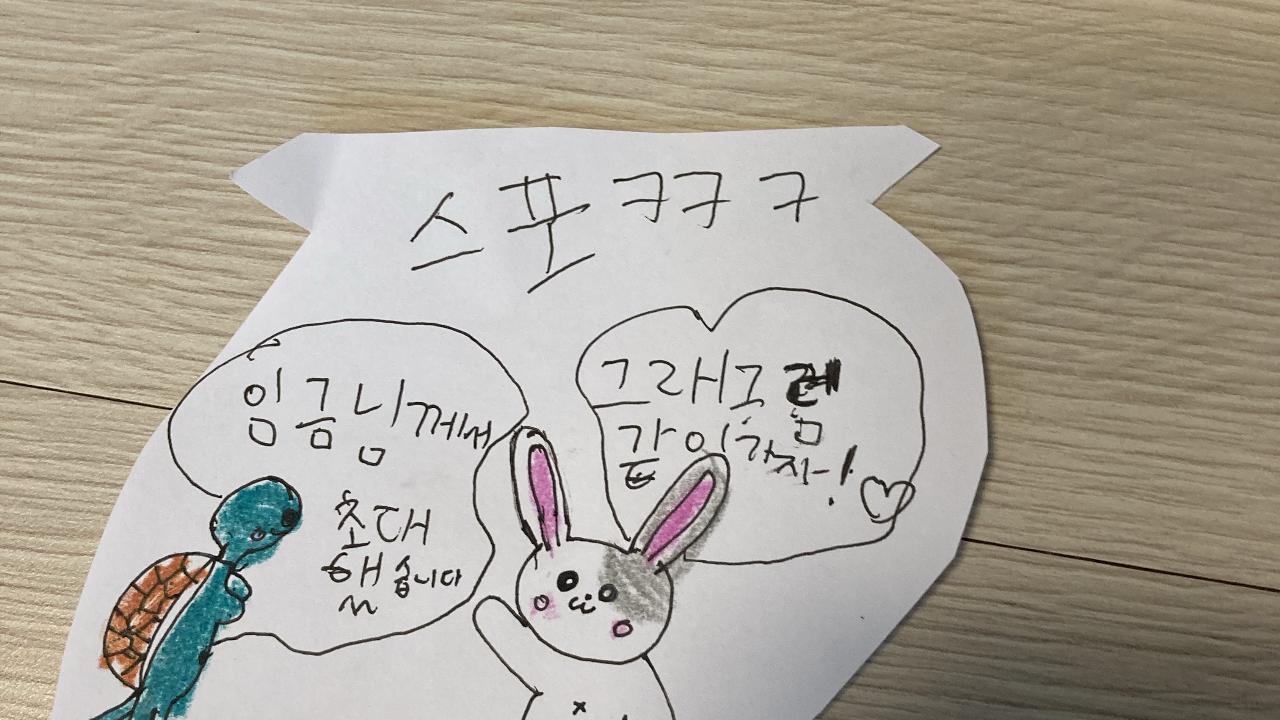 스포ㅋㅋㅋ
임금님께서
초대
했습니다
그래그럼
같이가자!